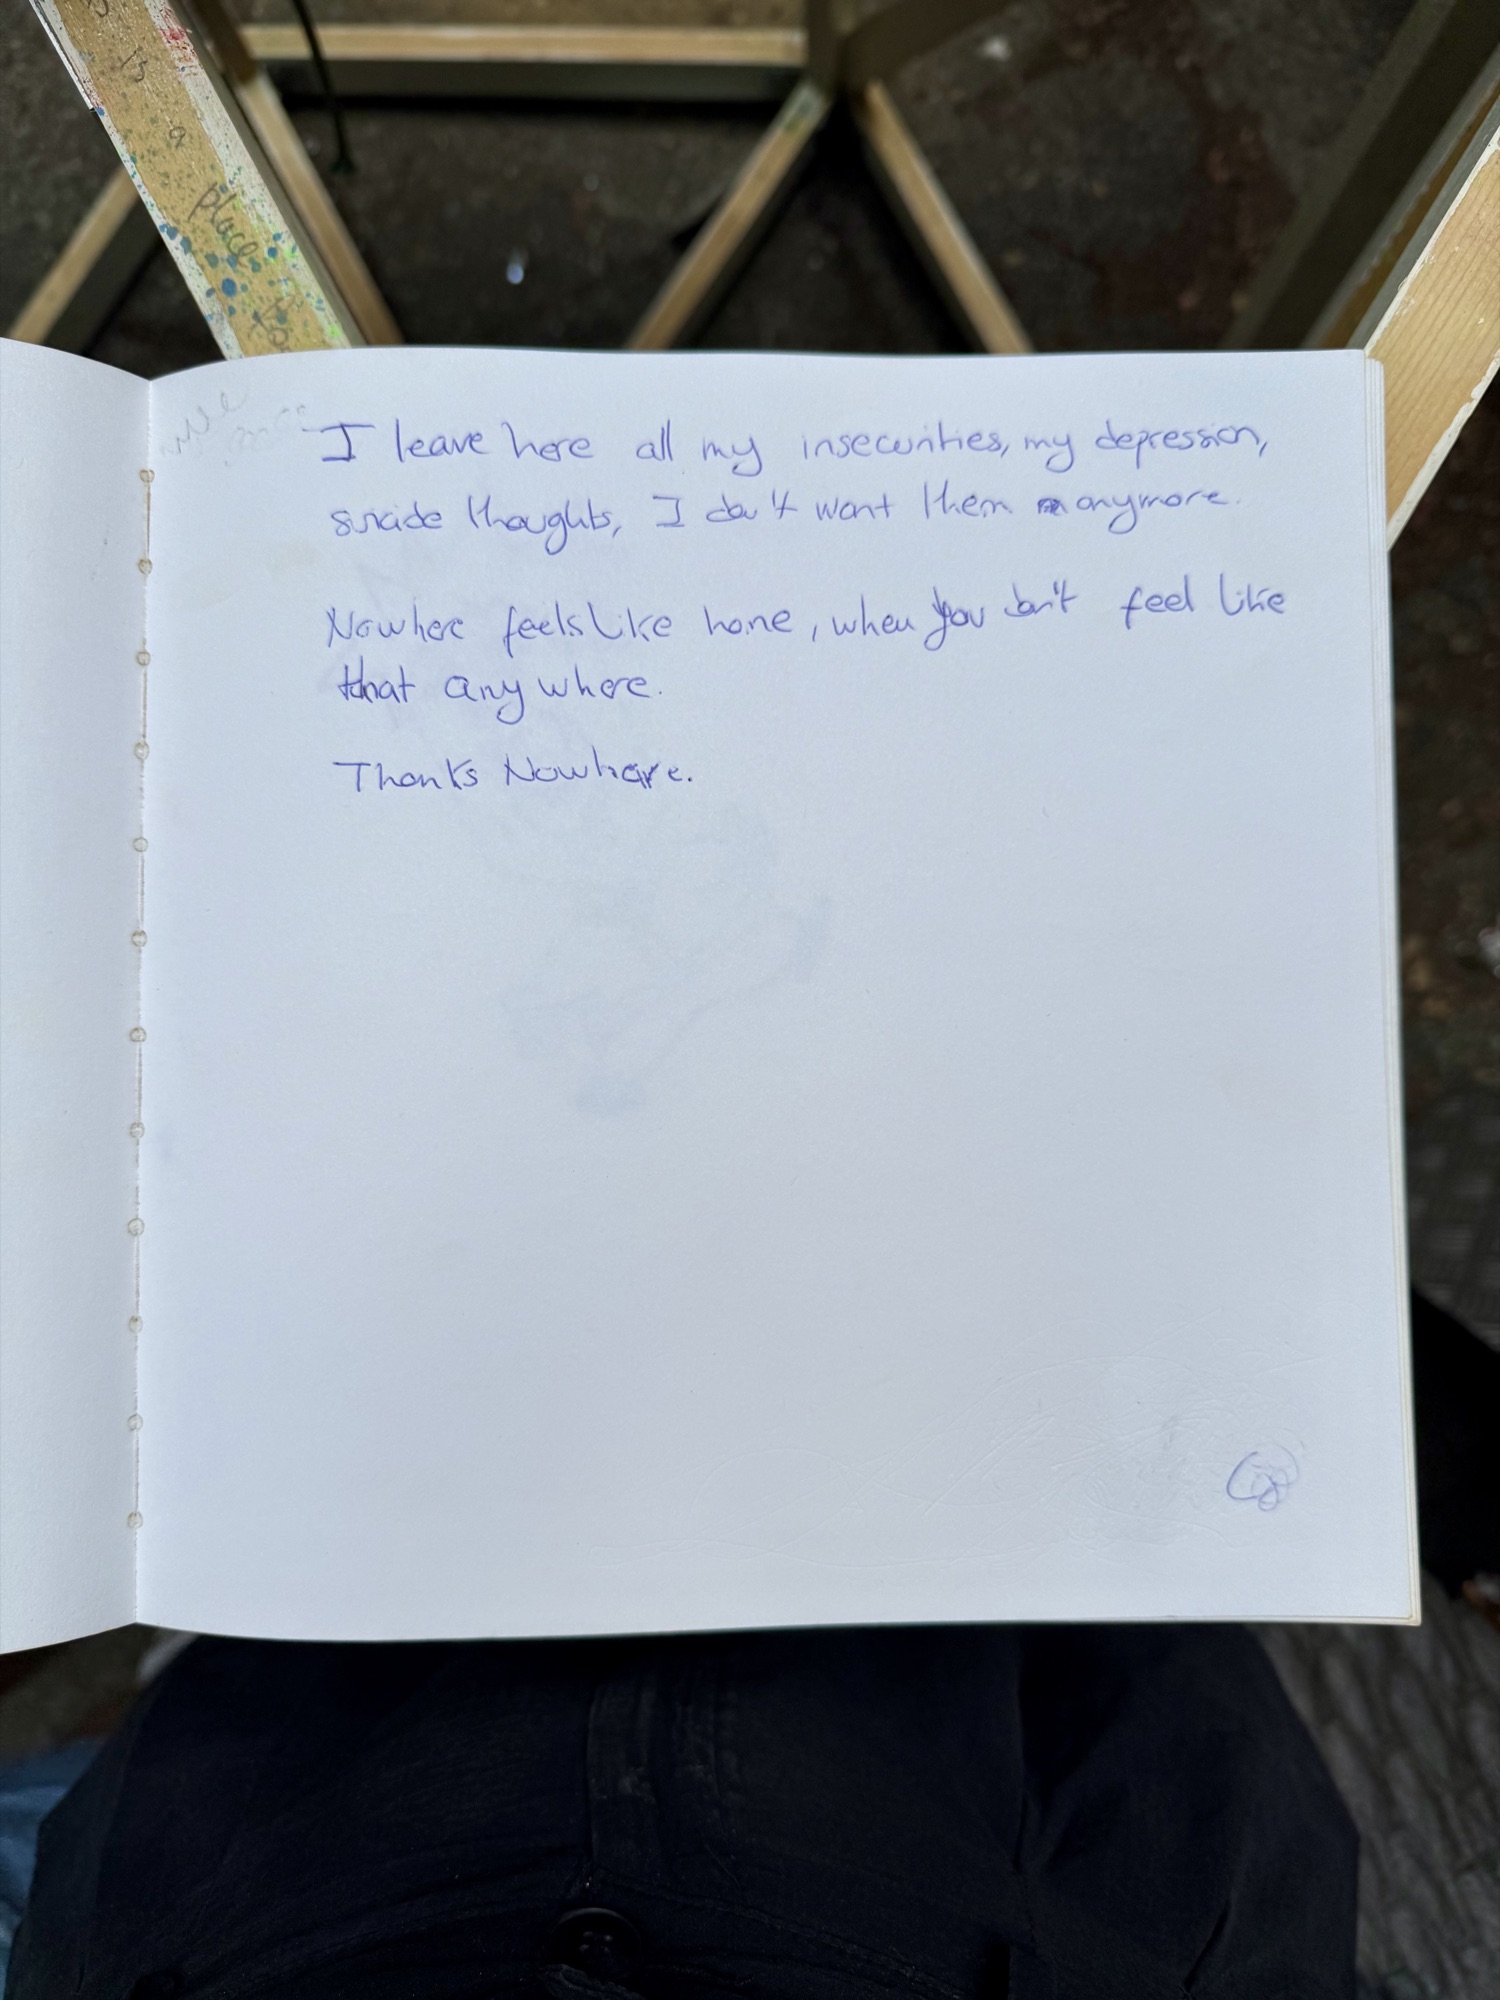 place
I leave here all my insecurities, my depression,
suicide thoughts, I don't want them anymore.
Nowhere feels like home, when you don't feel like
that anywhere.
Thanks Nowhere.